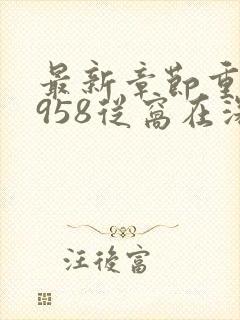 最新章節重
958從窩在深
汪後富